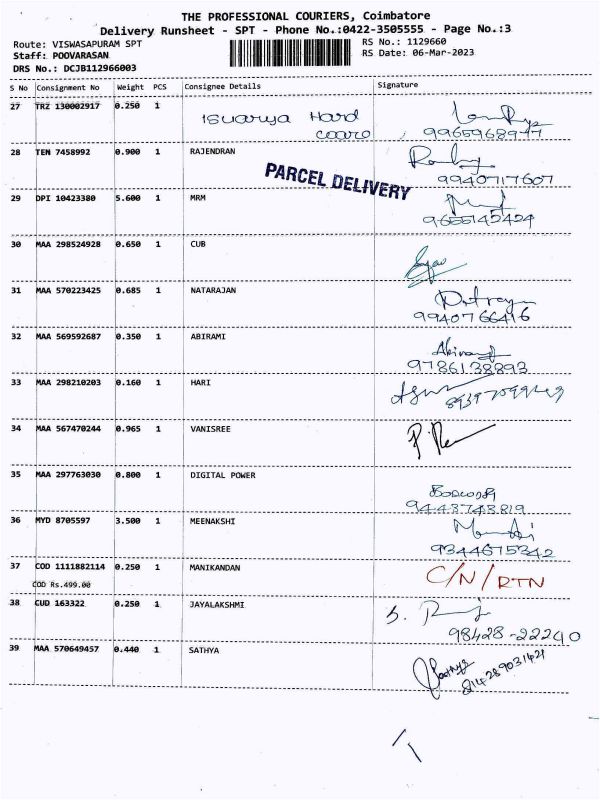 THE PROFESSIONAL COURIERS, Coimbatore
Delivery Runsheet - SPT - Phone No.:0422-3505555 - Page No.:3
Route: VISWASAPURAM SPT
RS No.: 1129660
Staff: POOVARASAN
RS Date: 06-Mar-2023
DRS No.: DCJB112966003
S No Consignment No Weight PCS Consignee Details Signature
27 TRZ 130002917 0.250 1 Hard
28 TEN 7458992 0.900 1 RAJENDRAN
9940717607
PARCEL DELIVERY
29 DPI 10423380 5.600 1 MRM
9655142424
30 MAA 298524928 0.650 1 CUB
31 MAA 570223425 0.685 1 NATARAJAN
9940766416
32 MAA 569592687 0.350 1 ABIRAMI
9786138893
33 MAA 298210203 0.160 1 HARI
34 MAA 567470244 0.965 1 VANISREE
35 MAA 297763030 0.800 1 DIGITAL POWER
9443743819
36 MYD 8705597 3.500 1 MEENAKSHI
9344675342
37 COD 1111882114 0.250 1 MANIKANDAN C/N/RTN
COD Rs.499.00
38 CUD 163322 0.250 1 JAYALAKSHMI
98428-22240
39 MAA 570649457 0.440 1 SATHYA